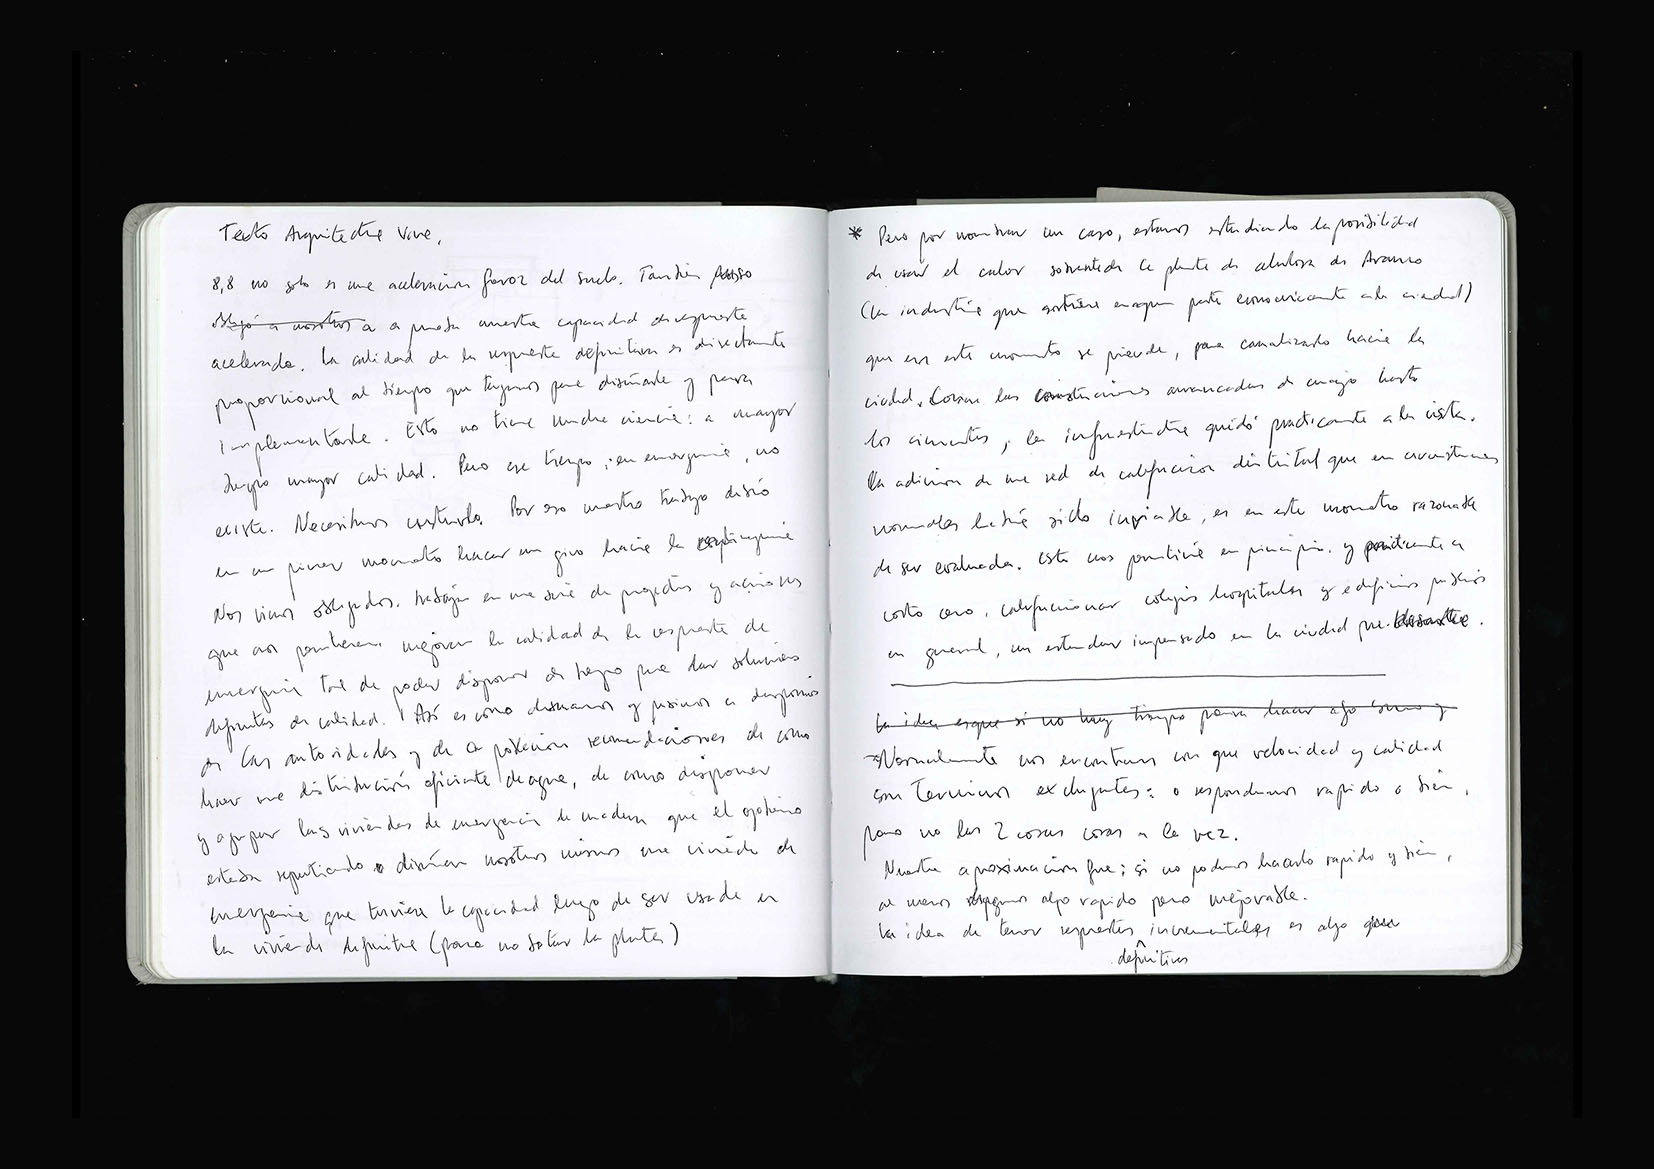 Texto Arquitectura Viva,
8,8 no solo es una aceleración feroz del suelo. También puso
obligó a nosotros a a prueba nuestra capacidad de respuesta
acelerada. La calidad de la respuesta definitiva es directamente
proporcional al tiempo que tengamos para diseñarla y para
implementarla. Esto no tiene mucha ciencia: a mayor
tiempo mayor calidad. Pero ese tiempo, en emergencia, no
existe. Necesitamos construirlo. Por eso nuestro trabajo debió
en un primer momento hacer un giro hacia la emergencia
Nos vimos obligados. trabajar en una serie de proyectos y acciones
que nos permitieran mejorar la calidad de la respuesta de
emergencia tal de poder disponer de tiempo para dar soluciones
definitivas de calidad. Así es como diseñamos y pusimos a disposición
de las autoridades y de la población recomendaciones de como
hacer una distribución eficiente de agua, de como disponer
y agrupar las viviendas de emergencia de madera que el gobierno
estaba repartiendo o diseñar nosotros mismos una vivienda de
emergencia que tuviera la capacidad luego de ser usada en
la vivienda definitiva (para no botar la plata)
* Pero por nombrar un caso, estamos estudiando la posibilidad
de usar el calor sobrante de la planta de celulosa de Arauco
(la industria que sostiene en gran parte economicamente a la ciudad)
que en este momento se pierde, para canalizarlo hacia la
ciudad. Como las construcciones arrancadas de cuajo hasta
los cimientos, la infraestructura quedó practicamente a la vista.
La adición de una red de calefaccion distrital que en circunstancias
normales habría sido inviable, es en este momento razonable
de ser evaluada. Esto nos permitiría en principio, y practicamente a
costo cero, calefaccionar colegios hospitales y edificios públicos
en general, un estandar impensado en la ciudad pre-desastre.
La idea es que si no hay tiempo para hacer algo bueno y
Normalmente nos encontramos con que velocidad y calidad
son terminos excluyentes: o respondemos rapido o bien,
pero no las 2 cosas cosas a la vez.
Nuestra aproximación fue: si no podemos hacerlo rapido y bien,
al menos hagamos algo rapido pero mejorable.
La idea de tener respuestas incrementales es algo que
definitivas